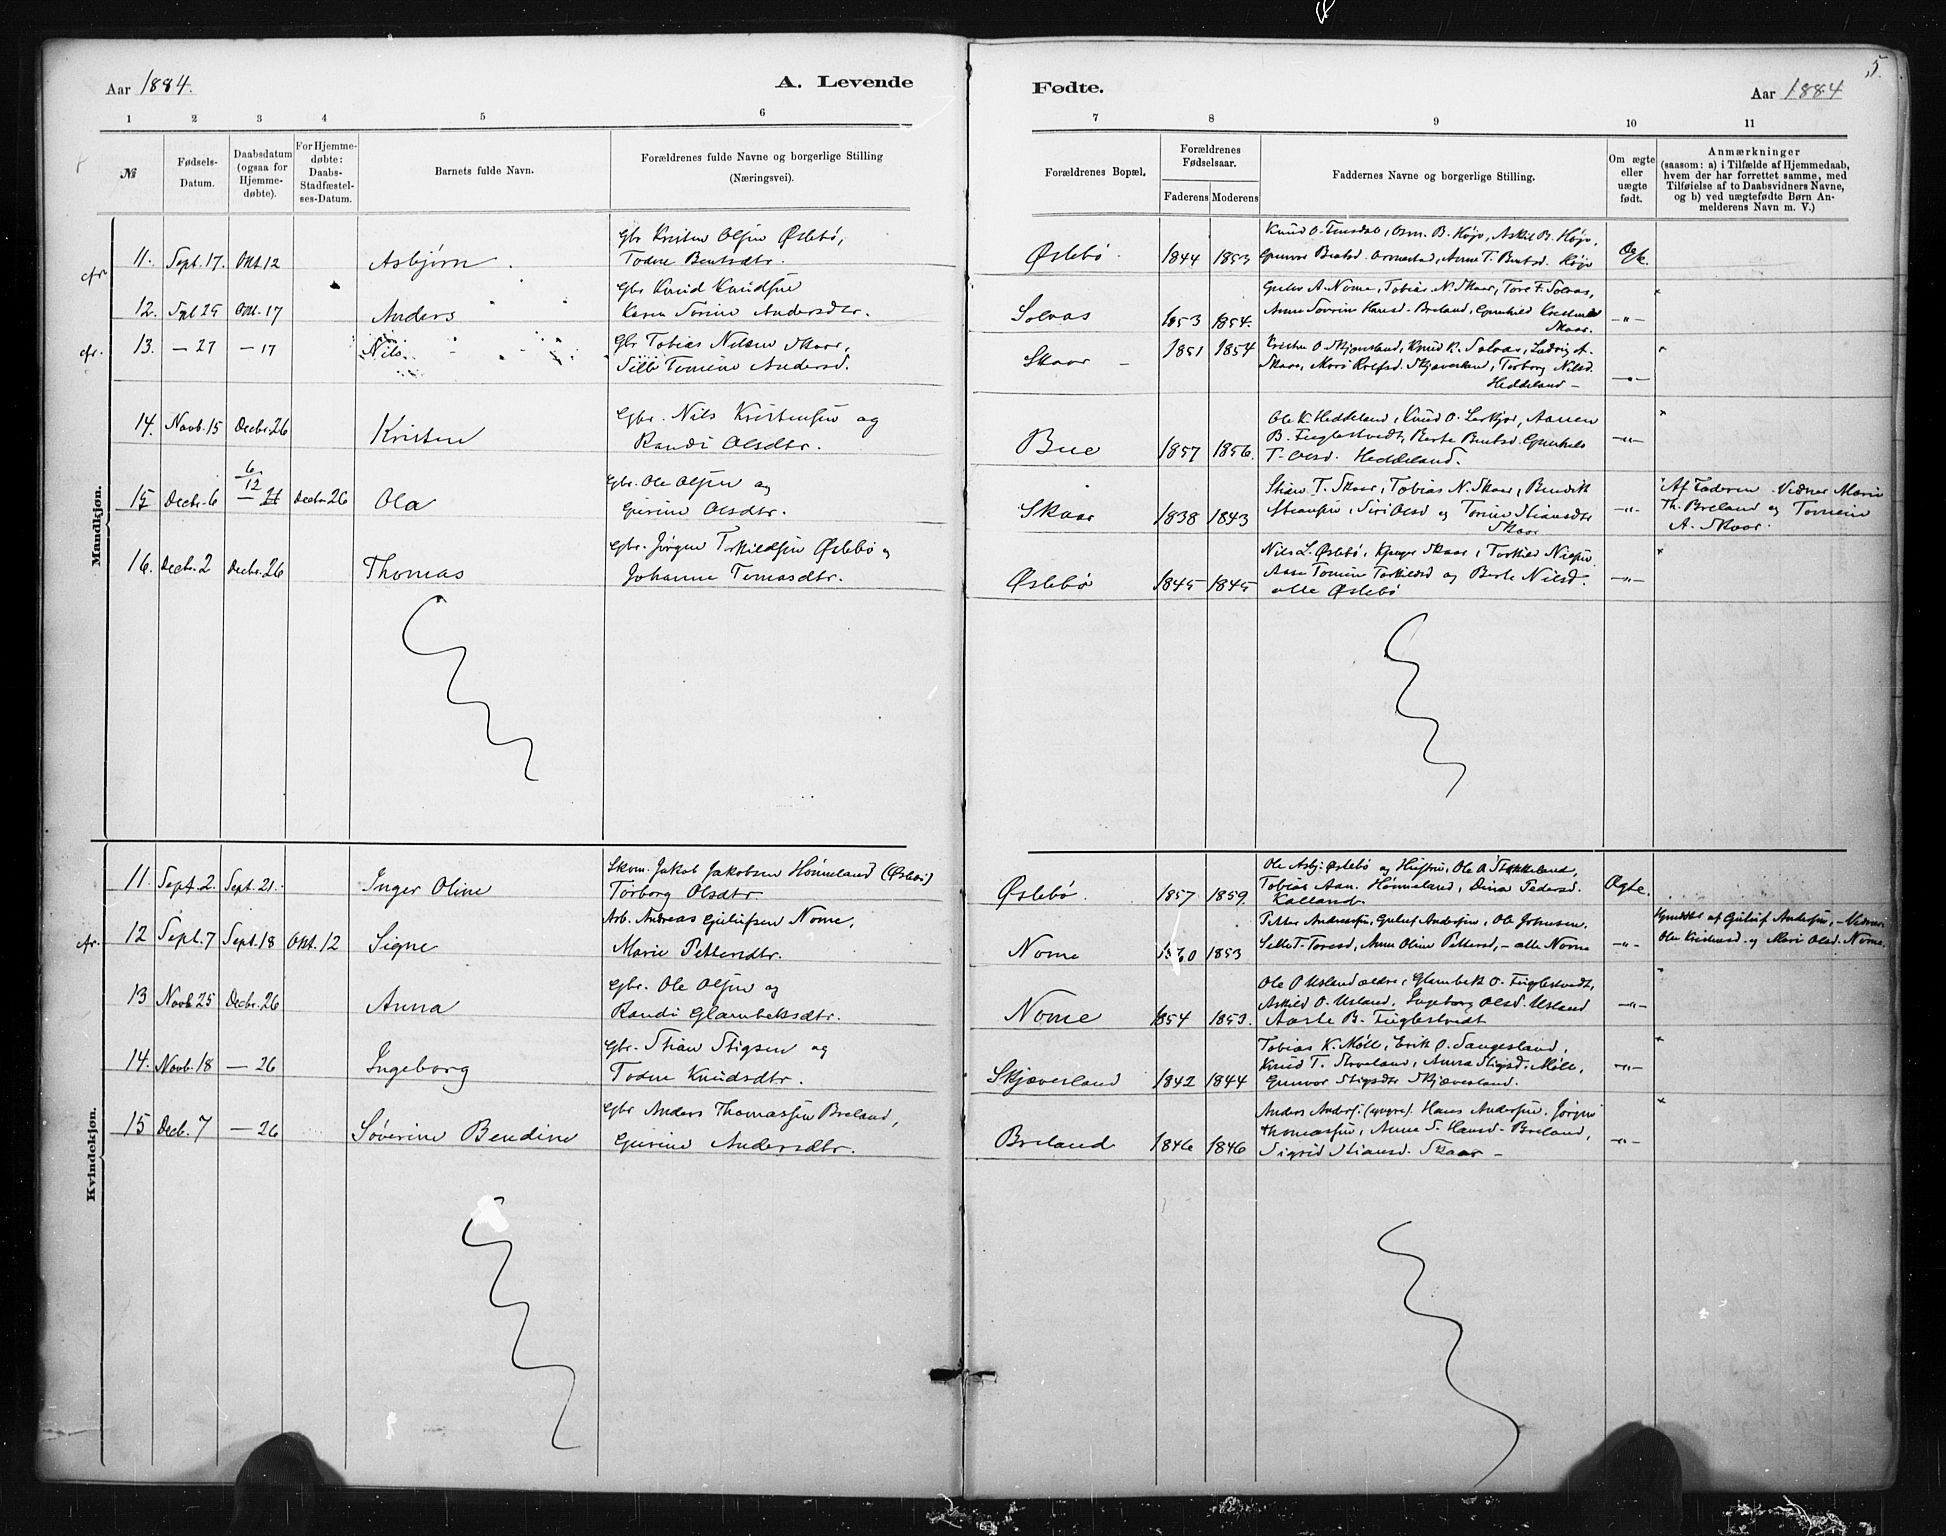 5.
Aar 1884.
A. Levende
Fødte.
Aar 1884
1 2 3 4 5 6 7 8 9 10 11
№
Fødsels-Datum.
Daabsdatum (ogsaa for Hjemmedøbte).
For Hjemmedøbte: Daabs-Stadfæstelses-Datum.
Barnets fulde Navn.
Forældrenes fulde Navne og borgerlige Stilling
(Næringsvei).
Forældrenes Bopæl.
Forældrenes Fødselsaar.
Faderens Moderens
Faddernes Navne og borgerlige Stilling.
Om ægte eller uægte født.
Anmærkninger
(saasom: a) i Tilfælde af Hjemmedaab,
hvem der har forrettet samme, med
Tilføielse af to Daabsvidners Navne,
og b) ved uægtefødte Børn An-
melderens Navn m. V.)
Mandkjøn.
11. Sept. 17. Okt. 12 Asbjørn
Gbr Kristen Olsen Øslebø,
Todne Bentsdtr.
Øslebø 1844 1853
12. Spt 29 Okt. 17 Anders
Gbr Knud Knudsen
Karen Sørine Andersdtr.
Solvas 1853 1854.
Gulev A. Nome, Tobias N. Skaar, Tore F. Solvas,
Anne Sovrine Hansd. Breland, Gunhild
Skaar. -"-
cfr. 13. — 27 — 17 Nils
Gbr Tobias Nilsen Skaar,
Sille Tomine Andersd.
Skaar — 1851 1854
Kristen O. Skjævesland, Knud K. Solvas, Ludvig A.
Skaar, Mari Rolfsd. Skjævesland, Torborg Nilsd.
Heddeland — -"-
14. Novb. 15 Decbr. 26 Kristen
Gbr. Nils Kristensen og
Randi Olsdtr.
Bue 1857 1856.
Ole K. Heddeland, Knud O. Aanen
B. Fuglestvedt, Berte Bentsd. Gunhild
T. Olsd. Heddeland. -"-
15. Decbr. 6 6/12 — 21 Decbr. 26 Ola
Gbr. Ole Olsen og
Gurine Olsdtr.
Skaar 1838 1843
Stian T. Skaar, Tobias N. Skaar, Bendik
Steansen, Siri Olsd og Torine Stiansdtr
Skaar -"-
Af Faderen. Vidner Marie
Th. Breland og Tomine
A. Skaar.
16. Decbr. 2 Decbr. 26 Thomas
Gbr. Jørgen Torkildsen Øslebø og
Johanne Tomasdtr.
Øslebø 1845 1845
Nils L. Øslebø, Skaar, Torkild Nilsen
Aase Tomine Torkildsd og Berte Nilsd.
alle Øslebø -"-
Kvindekjøn.
11. Sept. 2. Sept. 21. Inger Oline
Skom. Jakob Jakobsen Hønneland (Øslebø)
Torborg Olsdtr.
Øslebø 1857 1859.
Ole Asbj. Øslebø og Hustru, Ole O. Stokkeland,
Tobias Aan. Hønneland, Dina Pedersd.
Kalland. Ægte.
12 Sept. 7 Sept. 18 Okt. 12 Signe
Arb. Andreas Gulufsen Nome,
Marie Pettersdtr.
Nome 1860 1853
Petter Andersen, Guluf Andersen, Ole Johnsen,
Sille T. Toresd, Anne Oline Pettersd, — alle Nome -"-
Hjmdøbt af Guluf Andersen, — Vidner:
Ole Kristensd. og Mari Olsd. Nome.
13 Novb 25 Decbr. 26 Anna
Gbr. Ole Olsen og
Randi Glambeksdtr.
Nome 1854 1853.
Ole O Usland ældre, Glambek O. Fuglestvedt,
Askild O. Usland, Ingeborg Olsd. Usland
Aaste B. Fuglestvedt -"-
14. Novb. 18 — 26 Ingeborg
Gbr. Stian Stigsen og
Todne Knudsdtr.
Skjævesland 1842 1844
Tobias K. Møll, Erik O. Sangesland,
Knud T. Stveland, Anna Stigsd. Møll,
Gunvor Stigsdtr Skjævesland. -"-
15 Decb. 7 — 26 Søverine Bendine
Gbr Anders Thomassen Breland,
Gurine Andersdtr.
Breland 1846 1846
Anders Anders. (yngre). Hans Andersen. Jørgen
Thomassen, Anne S. Hansd. Breland,
Sigrid Stiansd. Skaar — -"-